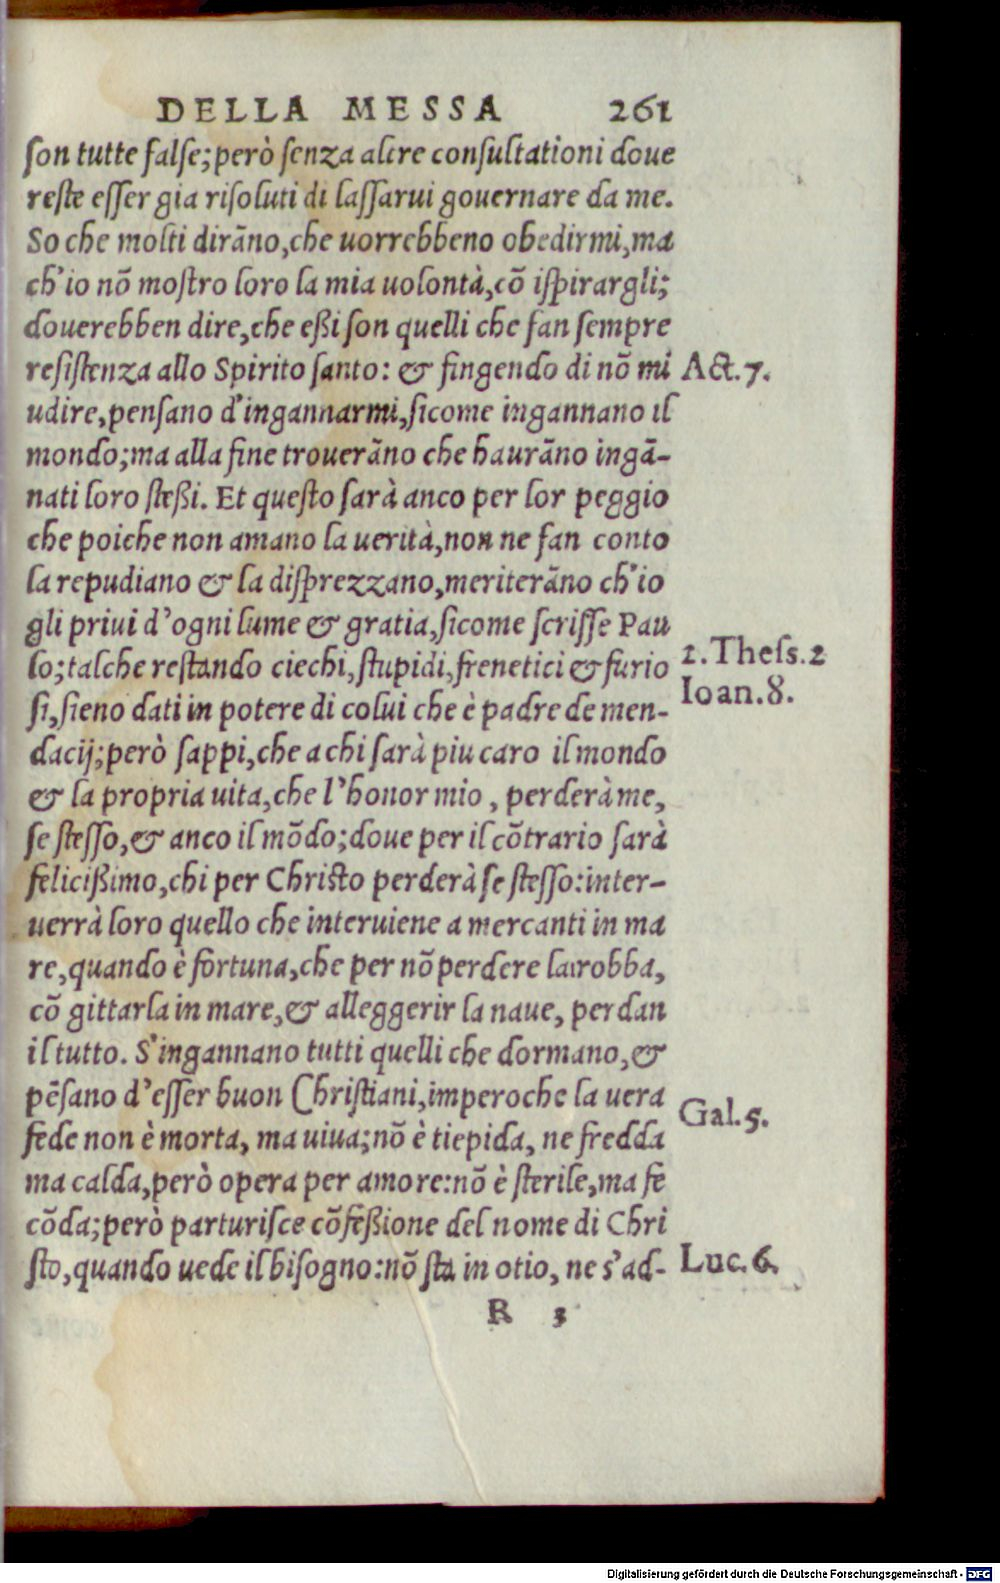 DELLA MESSA 261
ſon tutte falſe;però ſenza altre conſultationi doue
reſte eſſer gia riſoluti di laſſarui gouernare da me.
So che molti dirãno,che uorrebbeno obedirmi,ma
ch'io nõ moſtro loro la mia uolontà,cõ iſpirargli;
douerebben dire,che eßi ſon quelli che fan ſempre
reſiſtenza allo Spirito ſanto: & fingendo di nõ mi Act.7.
udire,penſano d'ingannarmi,ſicome ingannano il
mondo;ma alla fine trouerãno che haurãno ingã-
nati loro ſteßi. Et queſto ſarà anco per lor peggio
che poiche non amano la uerità,non ne fan conto
la repudiano & la diſprezzano,meriterãno ch'io
gli priui d'ogni lume & gratia,ſicome ſcriſſe Pau
lo;talche reſtando ciechi,ſtupidi,frenetici & furio 2.Theſs.2
ſi,ſieno dati in potere di colui che è padre de men- Ioan.8.
dacij;però ſappi,che a chi ſarà piu caro il mondo
& la propria uita,che l'honor mio, perderà me,
ſe ſteſſo,& anco il mõdo;doue per il cõtrario ſarà
felicißimo,chi per Chriſto perderà ſe ſteſſo:inter-
uerrà loro quello che interuiene a mercanti in ma
re,quando è fortuna,che per nõ perdere la robba,
cõ gittarla in mare,& alleggerir la naue, perdan
il tutto. S'ingannano tutti quelli che dormano,&
pẽſano d'eſſer buon Chriſtiani,imperoche la uera
fede non è morta, ma uiua;nõ è tiepida, ne fredda Gal.5.
ma calda,però opera per amore:nõ è ſterile,ma fe
cõda;però parturiſce cõfeßione del nome di Chri
ſto,quando uede il biſogno:nõ ſta in otio, ne s'ad- Luc.6.
R 3
Digitalisierung gefördert durch die Deutsche Forschungsgemeinschaft - DFG